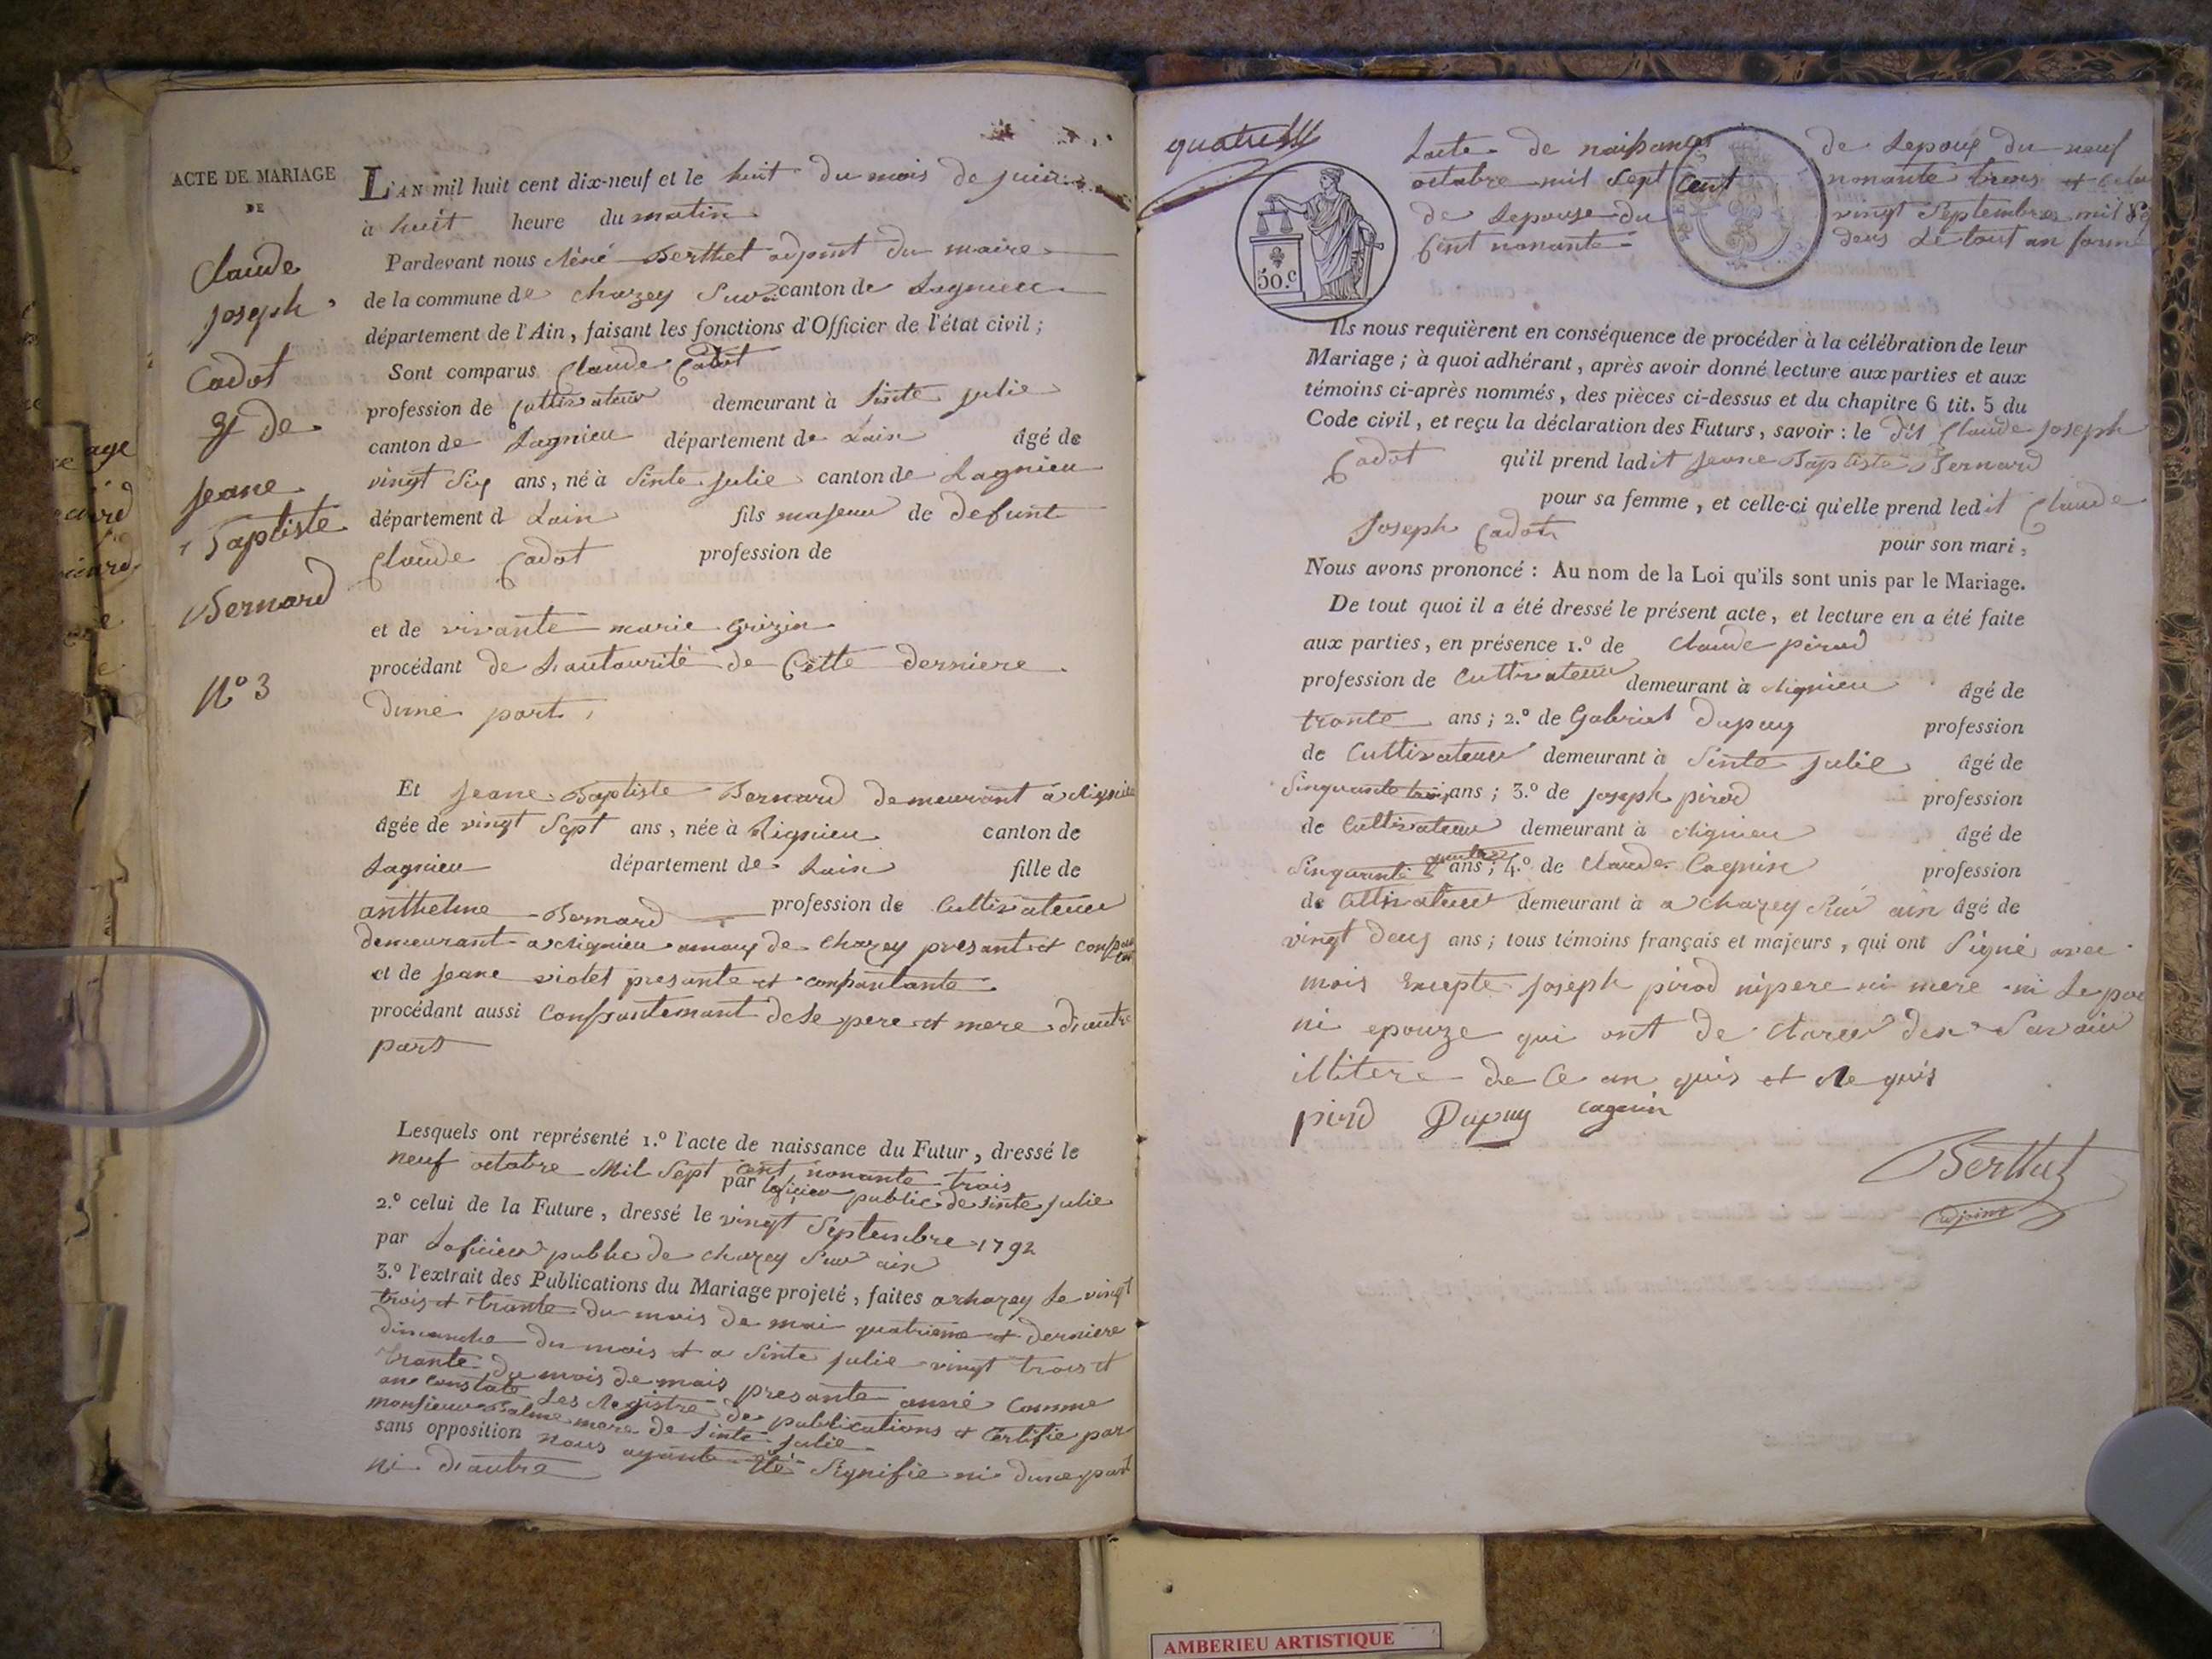 ACTE DE MARIAGE
DE
Claude
Joseph
Cadot
& de
Jeane
Baptiste
Bernard
N.o 3
L'AN mil huit cent dix-neuf et le huit du mois de juin
à huit heure du matin
Pardevant nous Réné Berthet adjoint du maire
de la commune de chazey Sur canton de Lagnieu
département de l'Ain, faisant les fonctions d'Officier de l'état civil;
Sont comparus Claude Cadot
profession de Cultivateur demeurant à Sinte julie
canton de Lagnieu département de Lain âgé de
vingt Six ans, né à Sinte julie canton de Lagnieu
département d Lain fils majeur de defunt
Claude Cadot profession de
et de vivante marie Grizin
procédant de Lautaurité de Cette derniere
dune part,
Et Jeane Baptiste Bernard demeurant à Rignieu
âgée de vingt Sept ans, née à Rignieu canton de
Lagnieu département de Lain fille de
anthelme Bernard profession de Cultivateur
demeurant a Rignieu amaux de chazey presant et
et de jeane violet presante et consantante
procédant aussi Consantemant de Se pere et mere d'autre
part
Lesquels ont représenté 1.º l'acte de naissance du Futur, dressé le
neuf octobre Mil Sept cent nonante trois
par loficier public de Sinte julie
2.º celui de la Future, dressé le vingt Septembre 1792
par Loficier public de chazey Sur ain
3.º l'extrait des Publications du Mariage projeté, faites a chazey le vingt
trois et trante du mois de mai quatrieme et derniere
dimanche du mois et a Sinte julie vingt trois et
trante du mois de mais presante anné Comme
an Constate Les Registre de publications et Certifie par
monsieur Balme mere de Sinte julie
sans opposition nous ayante été Signifie ni dune part
ni d'autre
quatre
Lacte de naissance de Lepoux du neuf
octobre mil Sept Cent nonante trois et celui
de Lepouse du vingt Septembre mil Sep
Cent nonante deux Le tout an forme
50.c
Ils nous requièrent en conséquence de procéder à la célébration de leur
Mariage; à quoi adhérant, après avoir donné lecture aux parties et aux
témoins ci-après nommés, des pièces ci-dessus et du chapitre 6 tit. 5 du
Code civil, et reçu la déclaration des Futurs, savoir: le dit Claude Joseph
Cadot qu'il prend ladit jeane Baptiste Bernard
pour sa femme, et celle-ci qu'elle prend ledit Claude
Joseph Cadot pour son mari,
Nous avons prononcé: Au nom de la Loi qu'ils sont unis par le Mariage.
De tout quoi il a été dressé le présent acte, et lecture en a été faite
aux parties, en présence 1.º de Claude pirod
profession de Cultivateur demeurant à Rignieu âgé de
trante ans; 2.º de Gabriel Dupuy profession
de Cultivateur demeurant à Sinte julie âgé de
Sinquante trois ans; 3.º de joseph pirod profession
de Cultivateur demeurant à Rignieu âgé de
Sinquante quatre ans; 4.º de Claude Cagnin profession
de Cultivateur demeurant à a chazey Sur ain âgé de
vingt deux ans; tous témoins français et majeurs, qui ont Signé avec
mois Excepte joseph pirod ni pere ni mere ni Lepou
ni epouze qui ont de Claree den Savoir
illitere de Ce an quis et Requis
pirod Dupuy cagnin
Berthet
adjoint
AMBERIEU ARTISTIQUE